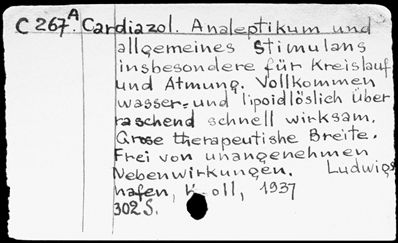 C 267A. Cardiazol. Analeptikum und
allgemeines Stimulans
insbesondere für Kreislauf
und Atmung. Vollkommen
wasser= und lipoidlöslich über
raschend schnell wirksam.
Grose therapeutishe Breite.
Frei von unangenehmen
Nebenwirkungen. Ludwigs
hafen, Knoll, 1937
302 S.